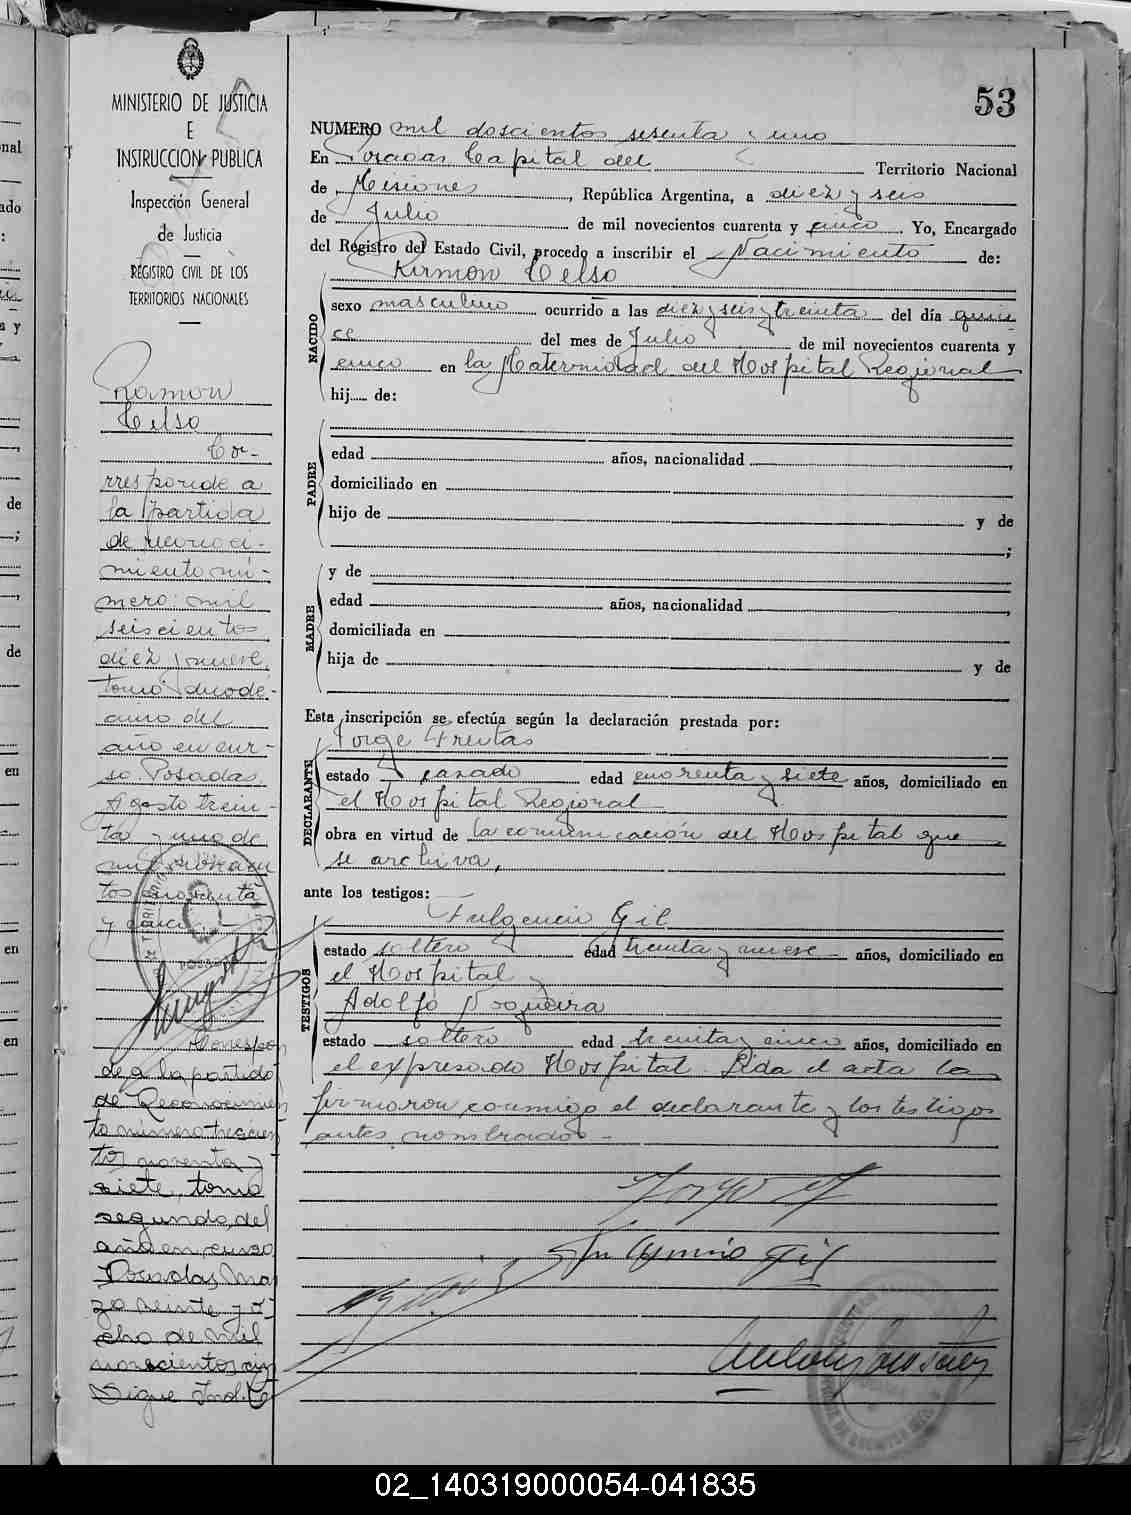 53
MINISTERIO DE JUSTICIA
E
INSTRUCCION PUBLICA
Inspección General
de Justicia
REGISTRO CIVIL DE LOS
TERRITORIOS NACIONALES
NUMERO mil doscientos sesenta y uno
En Posadas Capital del Territorio Nacional
de Misiones, República Argentina, a diez y seis
de Julio de mil novecientos cuarenta y cinco. Yo, Encargado
del Registro del Estado Civil, procedo a inscribir el Nacimiento de:
NACIDO
Ramon Celso
sexo masculino ocurrido a las diez y seis y treinta del día quin-
ce del mes de Julio de mil novecientos cuarenta y
cinco en la Maternidad del Hospital Regional
hij..... de:
PADRE
edad años, nacionalidad ,
domiciliado en
hijo de y de
;
MADRE
y de
edad años, nacionalidad ,
domiciliada en
hija de y de
Esta inscripción se efectúa según la declaración prestada por:
DECLARANTE
Jorge Freitas
estado casado edad cuarenta y siete años, domiciliado en
el Hospital Regional
obra en virtud de la comunicación del Hospital que
se archiva,
ante los testigos:
TESTIGOS
Fulgencio Gil
estado soltero edad treinta y nueve años, domiciliado en
el Hospital y
Adolfo Nogueira
estado soltero edad treinta y cinco años, domiciliado en
el expresado Hospital. Leida el acta la
firmaron conmigo el declarante y los testigos
antes nombrados -
Fulgencio Gil
Ramon
Celso
Co-
rresponde a
la partida
de reconoci-
miento nú-
mero: mil
seiscientos
diez y nueve,
tomo duodé-
cimo del
año en cur-
so. Posadas,
Agosto trein-
ta y uno de
mil novecien
tos cuarenta
y cinco. -
Correspon
de a la partida
de Reconocimien
to número trescien
tos noventa y
siete, tomo
segundo, del
año en curso
Posadas, Mar
zo veinte y o
cho de mil
novecientos cin
Sigue Ind.
02_140319000054-041835